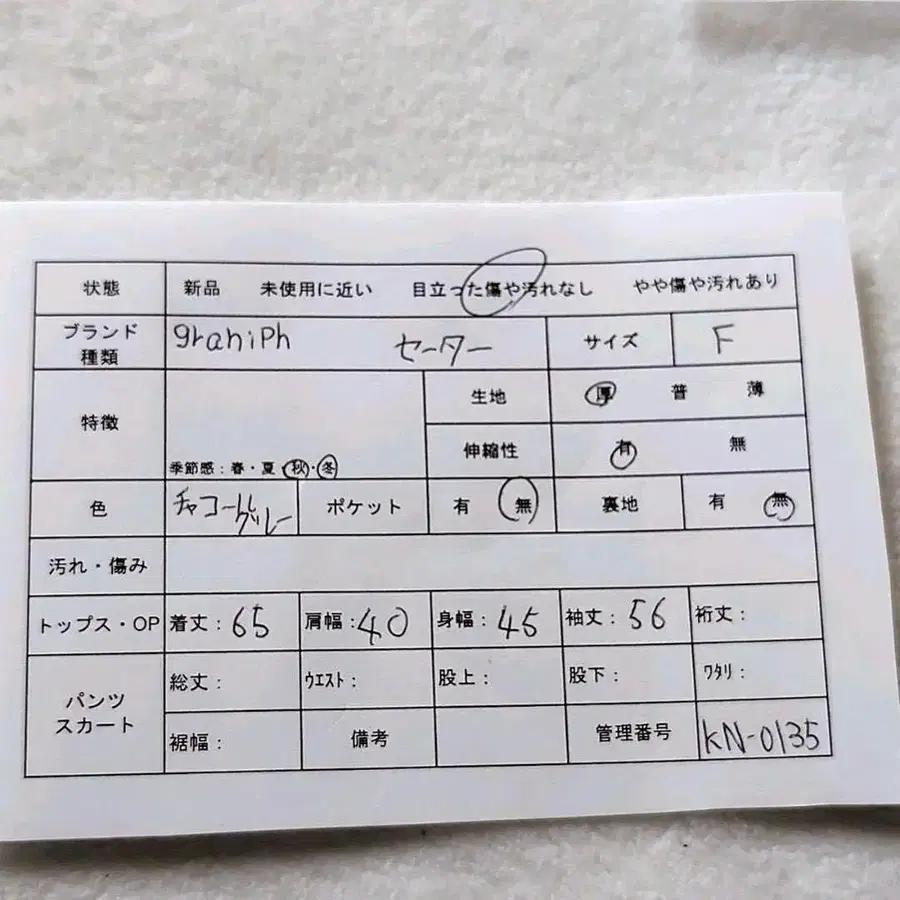 状態 新品 未使用に近い 目立った傷や汚れなし やや傷や汚れあり
ブランド 種類 graniph セーター サイズ F
特徴 生地 厚 普 薄
伸縮性 有 無
季節感:春・夏・秋・冬
色 チャコールグレー ポケット 有 無 裏地 有 無
汚れ・傷み
トップス・OP 着丈:65 肩幅:40 身幅:45 袖丈:56 裄丈:
パンツ スカート 総丈: ウエスト: 股上: 股下: ワタリ:
裾幅: 備考 管理番号 KN-0135